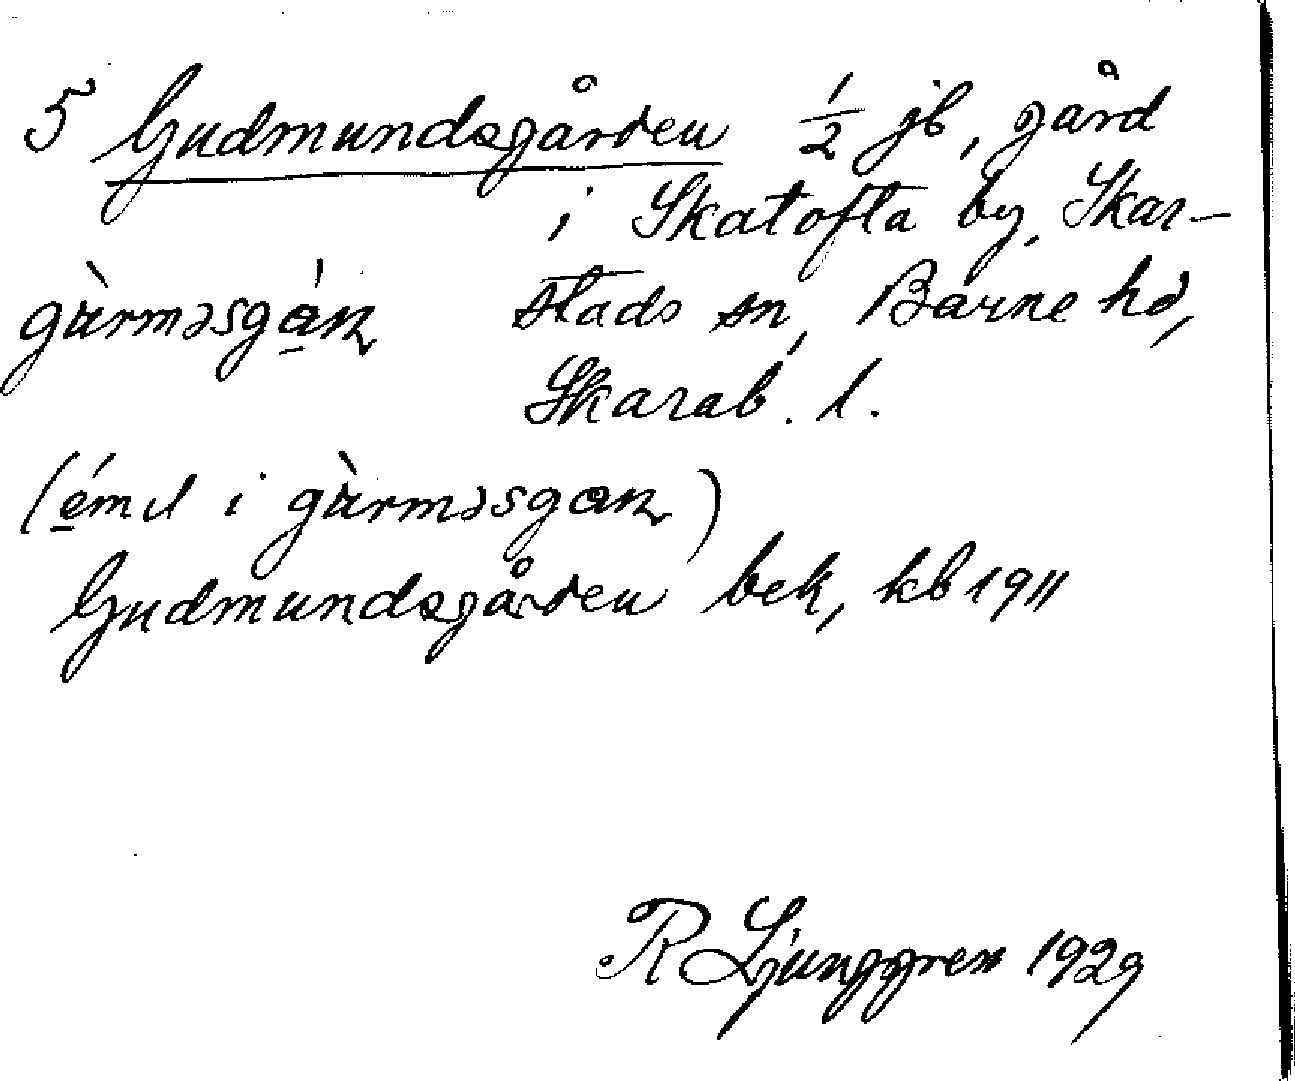 5 Gudmundsgården ½ jb, gård
i Skatofta by, Skar-
gùrməsgá̱ɳ stads sn, Barne hd,
Skarab. l.
(é̱mıl i gùrməsgaɳ)
Gudmundsgården bek, kb 1911
R Ljunggren 1929